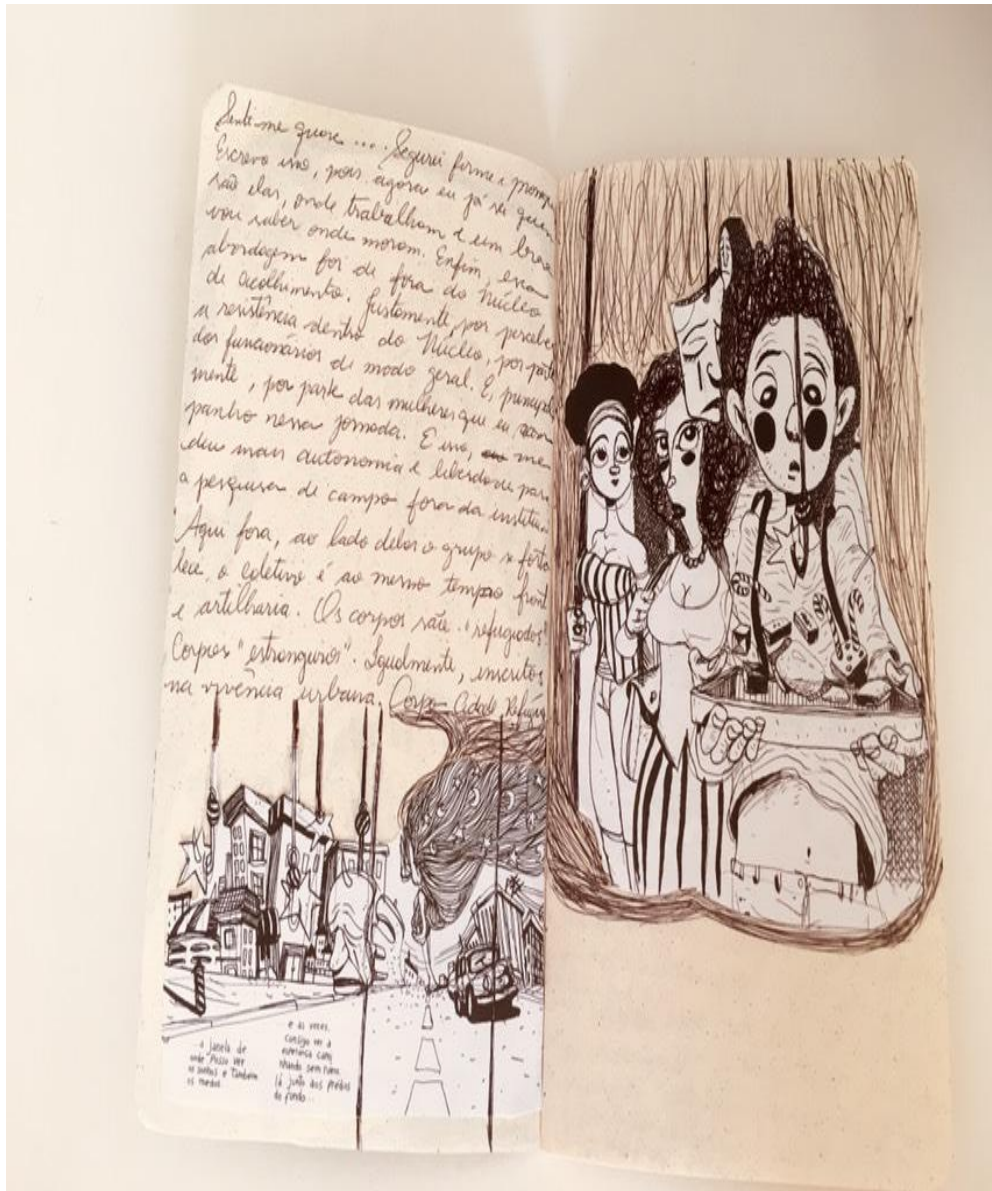 Senti-me quase .... Segurei firme e
Escrevo isso, pois agora eu já sei quem
são elas, onde trabalham e em breve
vou saber onde moram. Enfim, essa
abordagem foi de fora do Núcleo
de acolhimento. Justamente, por perceber
a resistência dentro do Núcleo, por parte
dos funcionários de modo geral. E, principal
mente, por parte das mulheres que eu acom
panho nessa jornada. E isso, me
deu mais autonomia e liberdade para
a pesquisa de campo fora da institui
Aqui fora, ao lado delas o grupo se forta
lece, o coletivo é ao mesmo tempo front
e artilharia. Os corpos são "refugiados"
Corpos "estrangeiros". Igualmente, inscritos
na vivência urbana. Corpo Cidade Refúgio
a janela de
onde posso ver
os sonhos e também
os medos.
e às vezes,
consigo ver a
esperança cami
nhando sem rumo
lá junto dos prédios
do fundo...